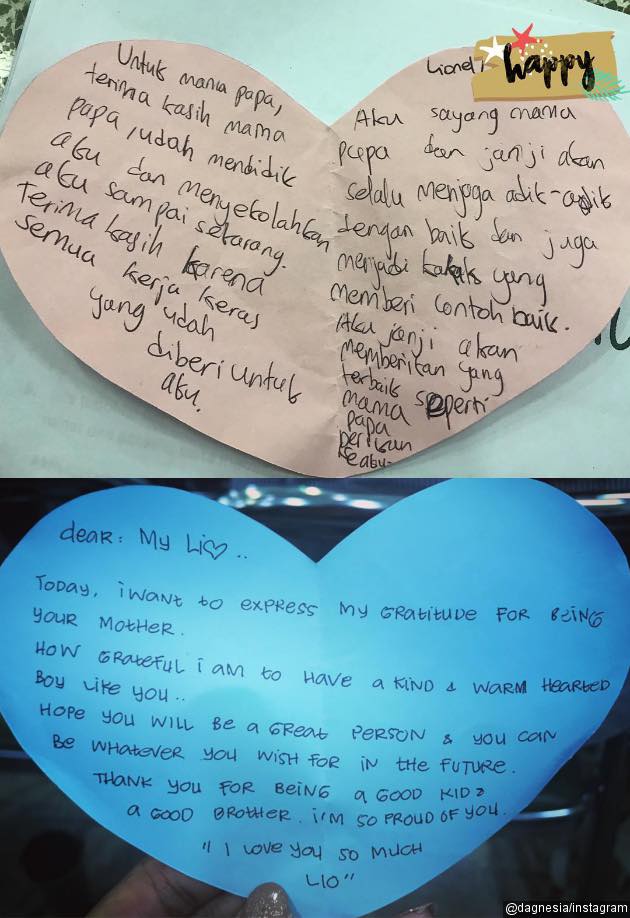 Untuk mama papa,
terima kasih mama
papa, udah mendidik
aku dan menyekolahkan
aku sampai sekarang.
Terima kasih karena
semua kerja keras
yang udah
diberi untuk
aku.
Lionel
happy
Aku sayang mama
papa dan janji akan
selalu menjaga adik-adik
dengan baik dan juga
menjadi kakak yang
memberi contoh baik.
Aku janji akan
memberikan yang
terbaik seperti
mama
papa
berikan
keaku
dear: My Lio..
Today, i want to express my gratitude for being
your mother.
How grateful i am to have a kind & warm hearted
boy like you..
Hope you will be a great person & you can
be whatever you wish for in the future.
Thank you for being a good kid &
a good brother. i'm so proud of you..
"I love you so much
Lio"
@dagnesia/instagram